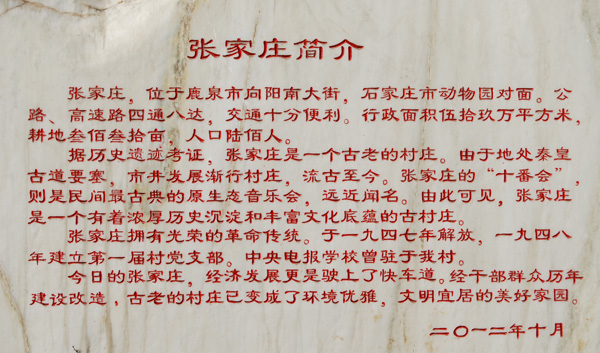 张家庄简介
张家庄，位于鹿泉市向阳南大街，石家庄市动物园对面。公
路、高速路四通八达，交通十分便利。行政面积伍拾玖万平方米，
耕地叁佰叁拾亩，人口陆佰人。
据历史遗迹考证，张家庄是一个古老的村庄。由于地处秦皇
古道要塞，市井发展渐行村庄，流古至今。张家庄的“十番会”，
则是民间最古典的原生态音乐会，远近闻名。由此可见，张家庄
是一个有着浓厚历史沉淀和丰富文化底蕴的古村庄。
张家庄拥有光荣的革命传统。于一九四七年解放，一九四八
年建立第一届村党支部。中央电报学校曾驻于我村。
今日的张家庄，经济发展更是驶上了快车道。经干部群众历年
建设改造，古老的村庄已变成了环境优雅，文明宜居的美好家园。
二〇一二年十月